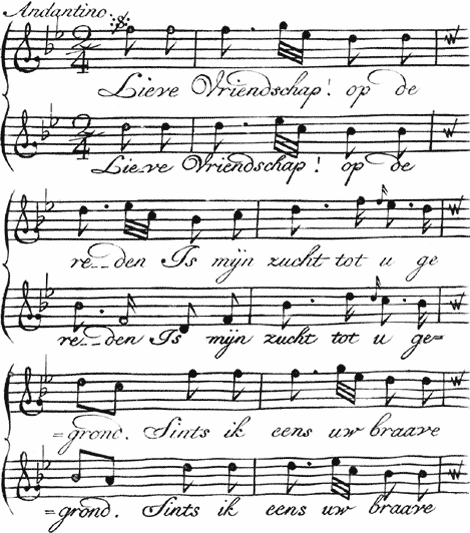 Andantino
2/4
Lieve Vriendschap! op de
2/4
Lieve Vriendschap! op de
re--den Is mijn zucht tot u ge
re--den Is mijn zucht tot u ge=
=grond. Sints ik eens uw braave
=grond. Sints ik eens uw braave